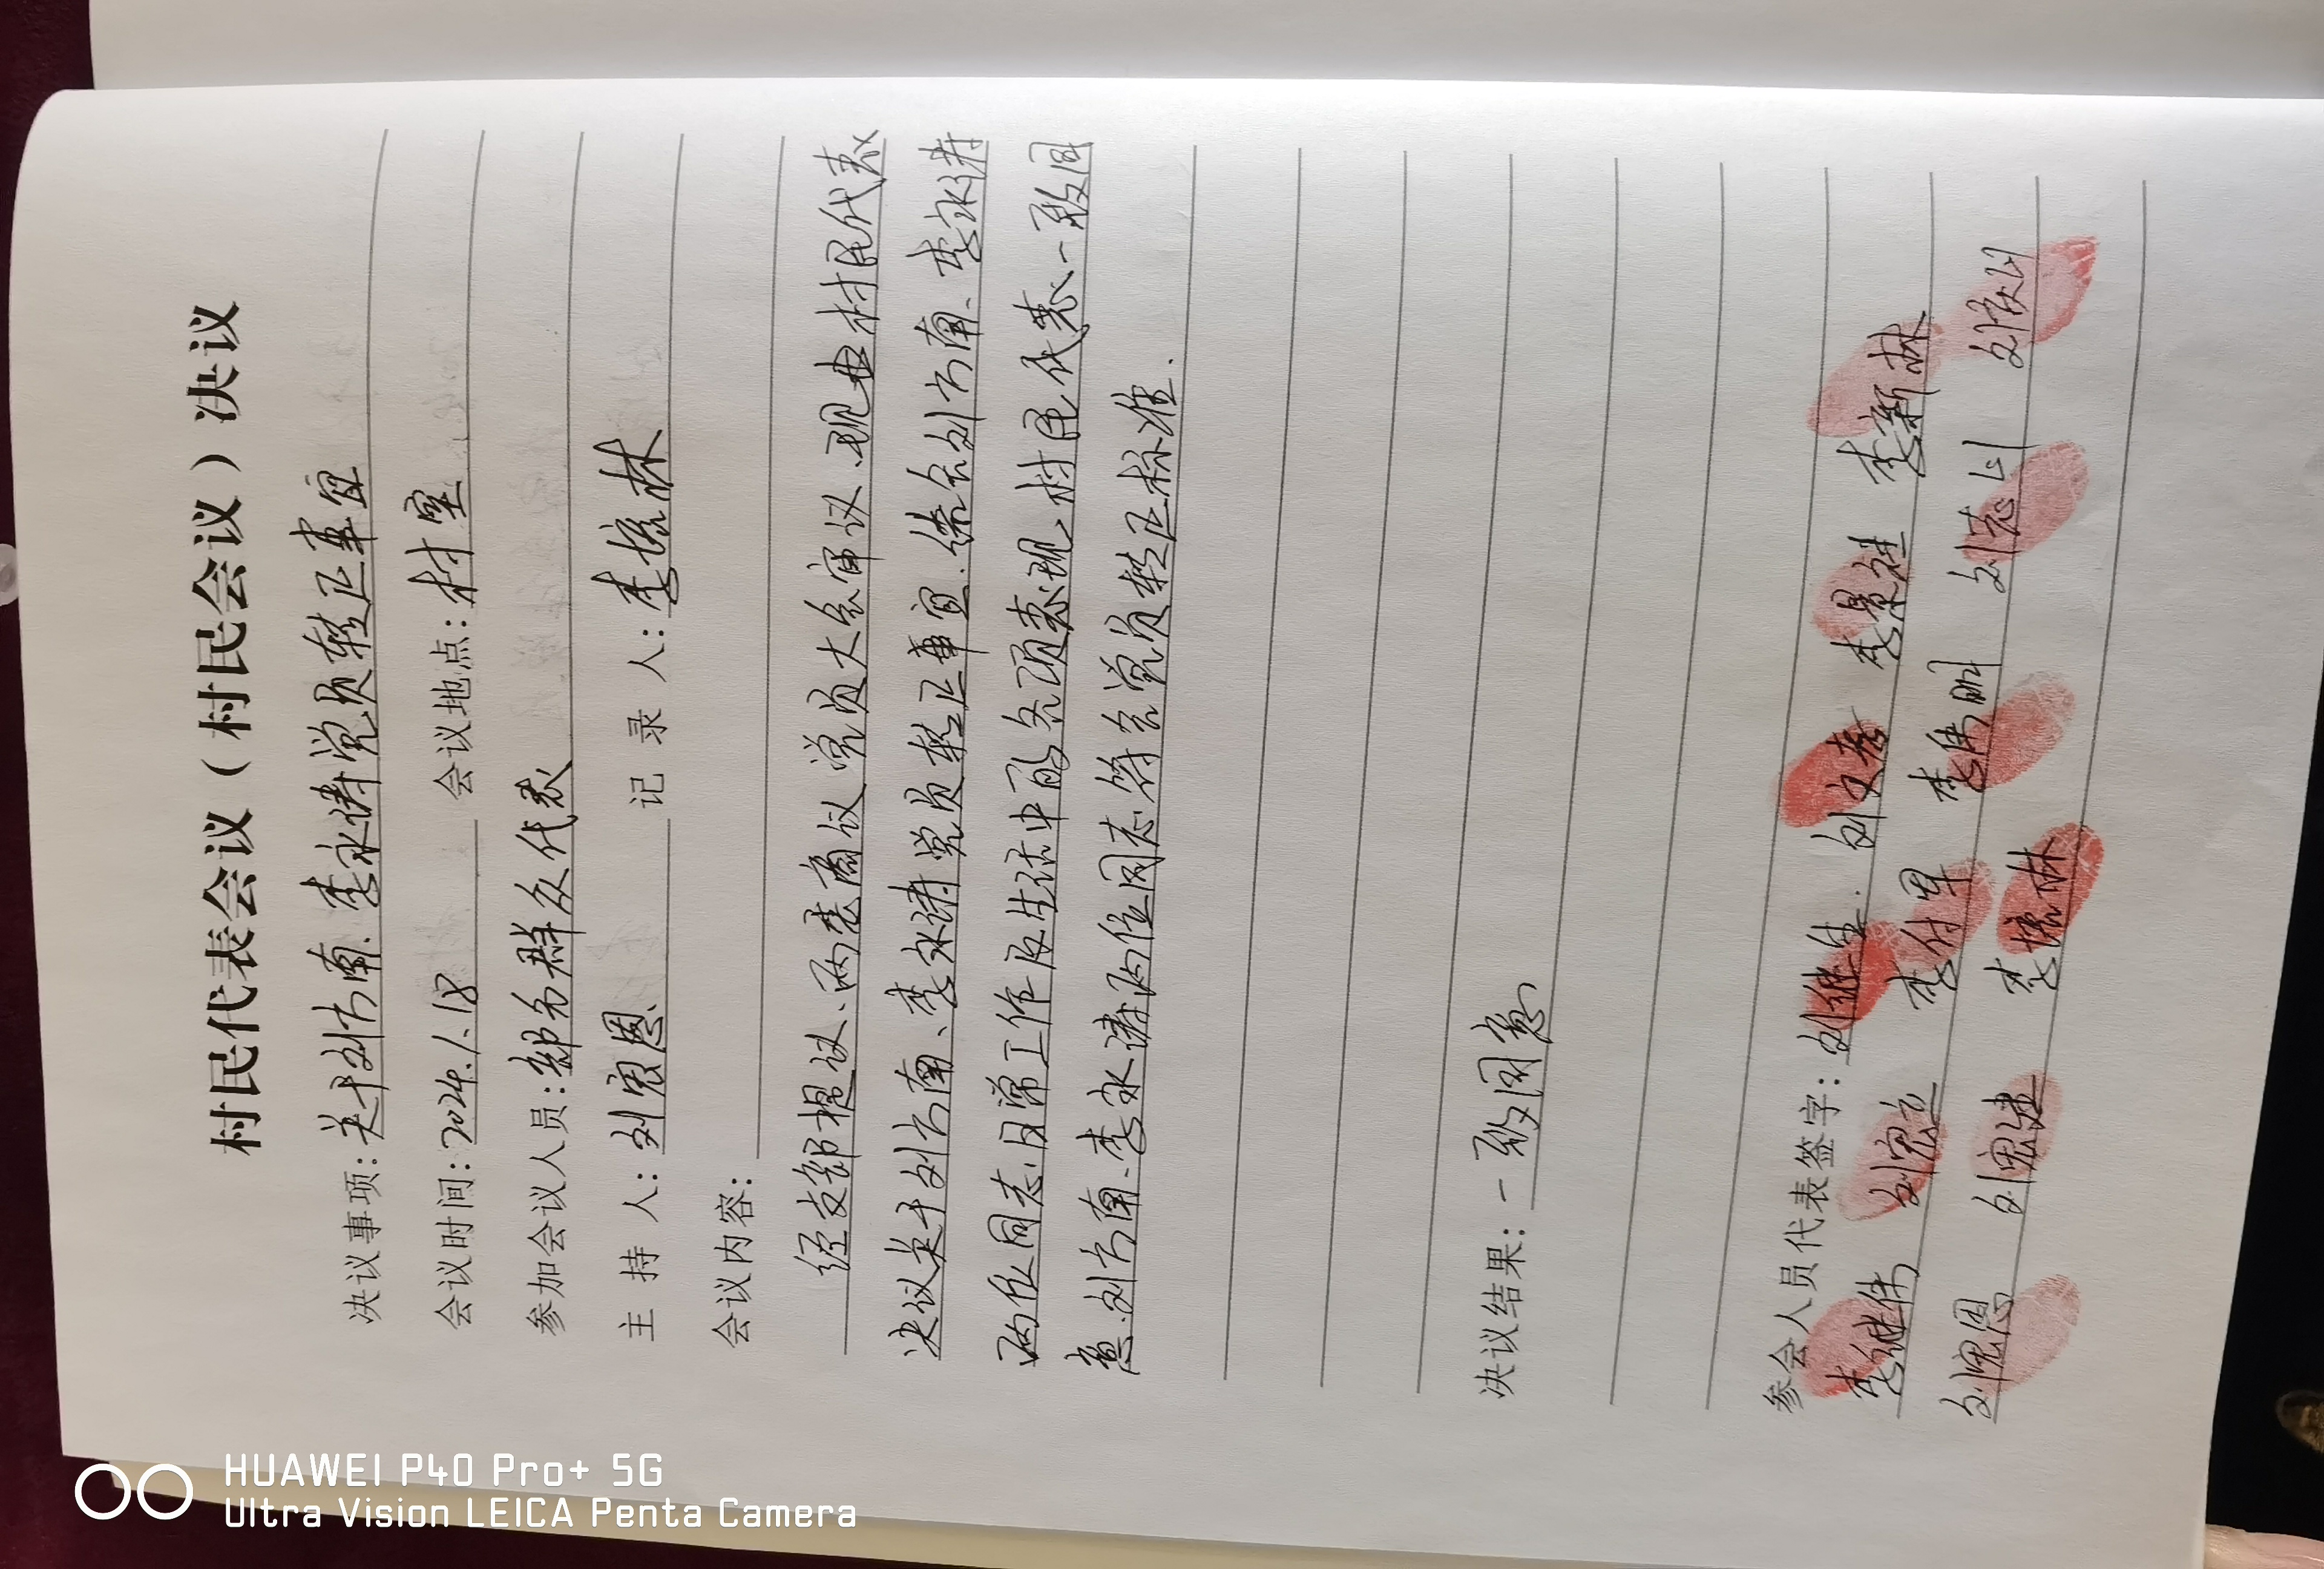 村民代表会议（村民会议）决议
决议事项：关于刘方南、李永涛党员转正事宜
会议时间：2024.1.18 会议地点：村室
参加会议人员：部分群众代表
主持人：刘宏恩 记录人：李培林
会议内容：
经支部提议、两委商议 党员大会审议、现由村民代表
决议关于刘方南、李永涛党员转正事宜.结合刘方南、李永涛
两位同志日常工作及生活中的各项表现 村民代表一致同
意.刘方南、李永涛两位同志符合党员转正标准.
决议结果：一致同意
参会人员代表签字：刘继生. 刘文 李景 李新林
李继伟 刘宏立 李付军 李伟明 刘志山 刘庆山
刘宏恩 刘宏建 李培林
HUAWEI P40 Pro+ 5G
Ultra Vision LEICA Penta Camera